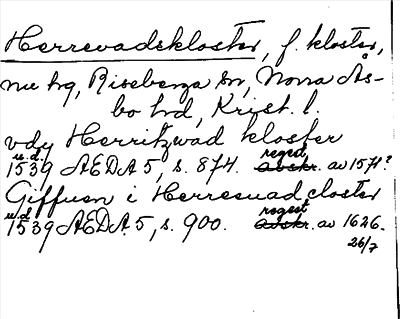 Herrevadskloster, f. kloster,
nu hg, Riseberga sn, Norra Ås-
bo hd, Krist. l.
vdy Herritzwad kloster
u.d. regest
1539 AEDA 5, s. 874. avskr. av 1571?
Giffuen i Herresuad closter
u.d. regest
1539 AEDA 5, s. 900. avskr. av 1626.
26/7